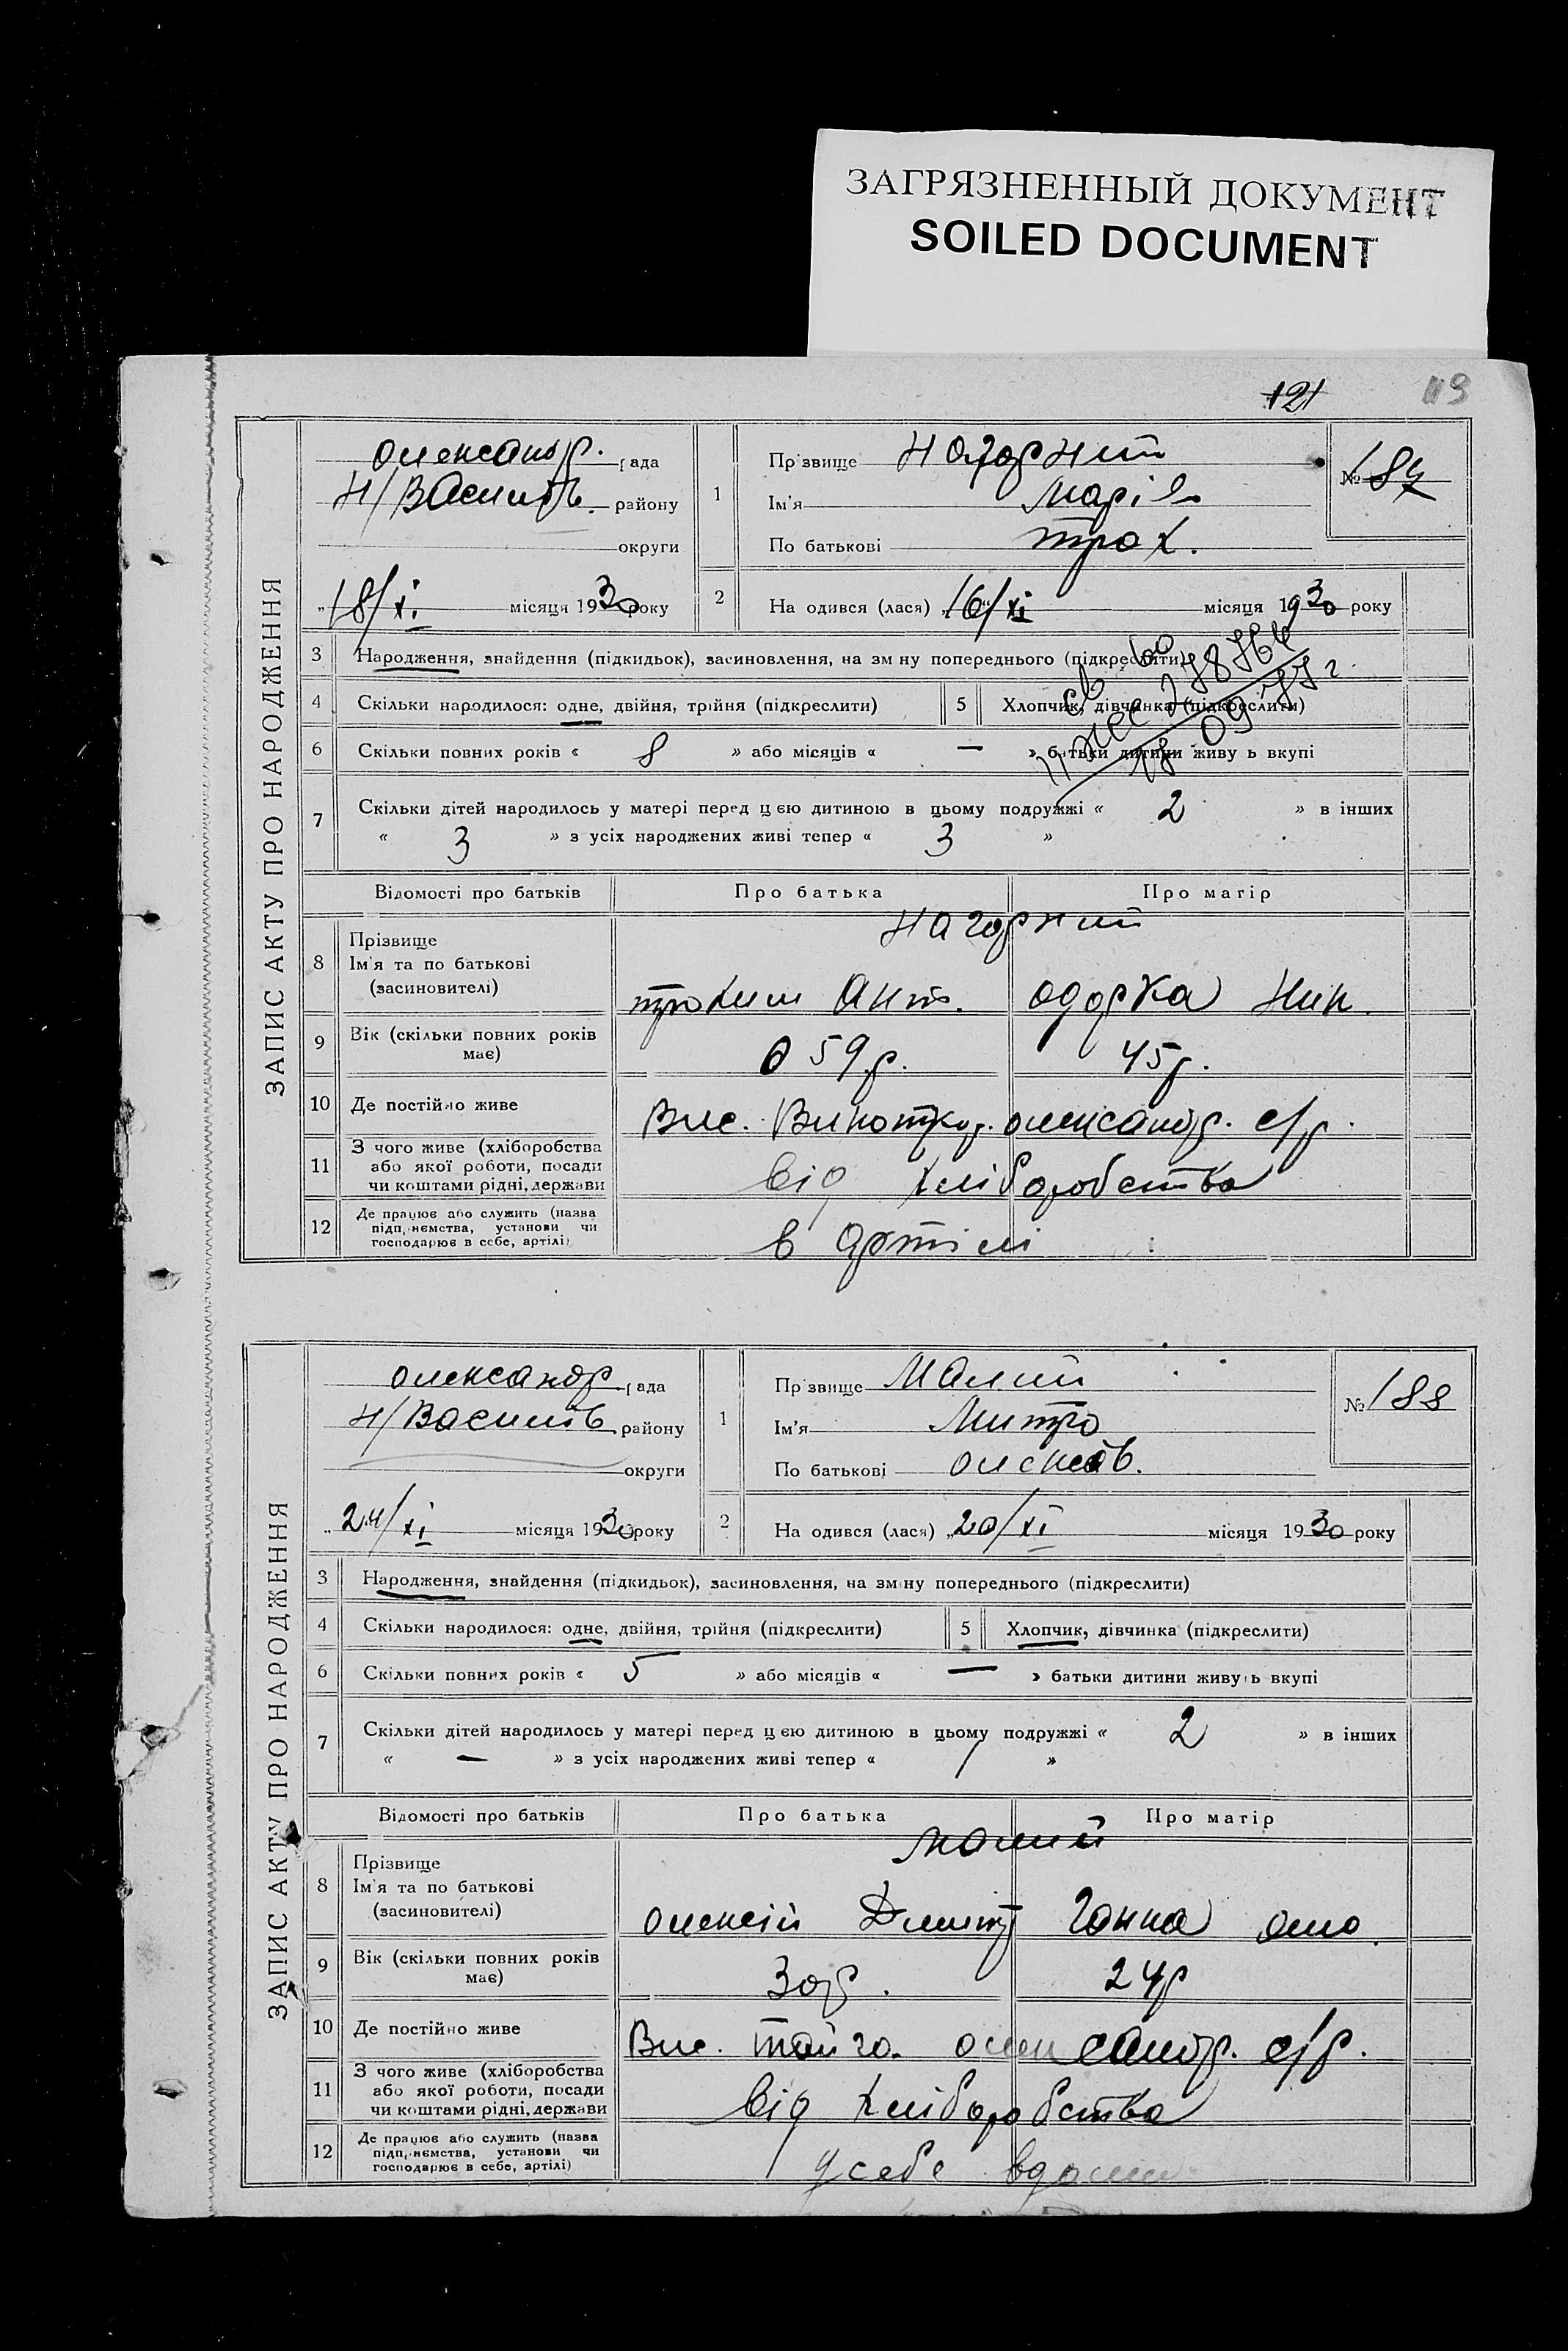 ЗАГРЯЗНЕННЫЙ ДОКУМЕНТ
SOILED DOCUMENT
121 113
ЗАПИС АКТУ ПРО НАРОДЖЕННЯ
Олександр. рада
Н/Василів. району
округи
"18/XI. місяця 1930 року
1 Прізвище Нагорний
Ім'я Марія
По батькові Трох.
№ 187
2 На одився (лася) "16/XI місяця 1930 року
3 Народження, знайдення (підкидьок), засиновлення, на зм ну попереднього (підкреслити)
4 Скільки народилося: одне, двійня, трійня (підкреслити) 5 Хлопчик, дівчинка (підкреслити)
6 Скільки повних років « 8 » або місяців « — » батьки дитини живу ь вкупі
7 Скільки дітей народилось у матері перед цєю дитиною в цьому подружжі « 2 » в інших
« 3 » з усіх народжених живі тепер « 3 »
Відомості про батьків Про батька Про матір
8 Прізвище
Ім'я та по батькові
(засиновителі)
Нагорний
Трохим Ант. Одорка Ник.
9 Вік (скільки повних років має) 59 р. 45 р.
10 Де постійно живе Вис. Олександр. с/р.
11 З чого живе (хліборобства
або якої роботи, посади
чи коштами рідні, держави
від хліборобства
12 Де працює або служить (назва
підп, нємства, установи чи
господарює в себе, артілі)
в артілі
ЗАПИС АКТУ ПРО НАРОДЖЕННЯ
Олександр рада
Н/Василів району
округи
"24/XI місяця 1930 року
1 Прізвище Малий
Ім'я Митро
По батькові
№ 188
2 На одився (лася) "20/XI місяця 1930 року
3 Народження, знайдення (підкидьок), засиновлення, на зм ну попереднього (підкреслити)
4 Скільки народилося: одне, двійня, трійня (підкреслити) 5 Хлопчик, дівчинка (підкреслити)
6 Скільки повних років « 5 » або місяців « — » батьки дитини живу ь вкупі
7 Скільки дітей народилось у матері перед цєю дитиною в цьому подружжі « 2 » в інших
« — » з усіх народжених живі тепер « 1 »
Відомості про батьків Про батька Про матір
8 Прізвище
Ім'я та по батькові
(засиновителі)
Малий
Олексій Дмит Ганна
9 Вік (скільки повних років має) 30 р. 24 р
10 Де постійно живе Вис. Олександр. с/р.
11 З чого живе (хліборобства
або якої роботи, посади
чи коштами рідні, держави
від хліборобства
12 Де працює або служить (назва
підп, нємства, установи чи
господарює в себе, артілі)
у себе вдома